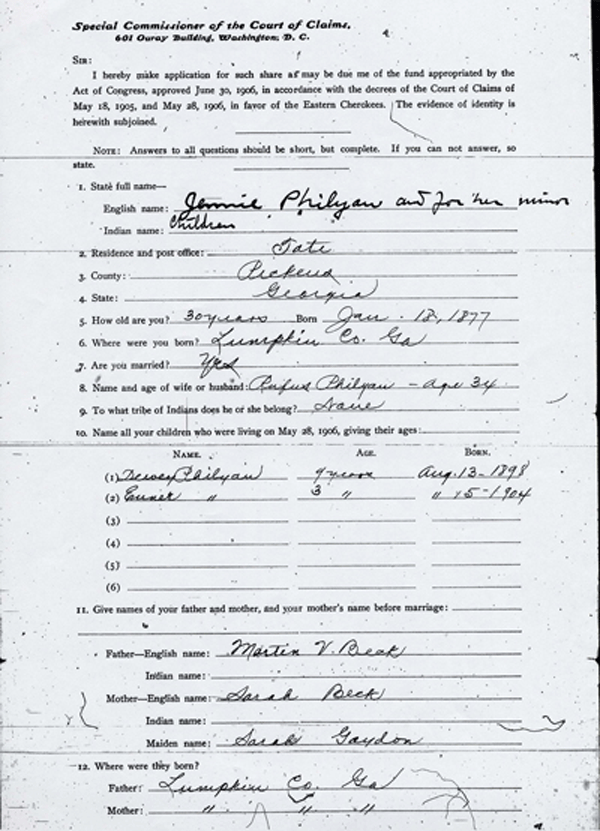 Special Commissioner of the Court of Claims,
601 Ouray Building, Washington, D. C.
SIR:
I hereby make application for such share as may be due me of the fund appropriated by the
Act of Congress, approved June 30, 1906, in accordance with the decrees of the Court of Claims of
May 18, 1905, and May 28, 1906, in favor of the Eastern Cherokees. The evidence of identity is
herewith subjoined.
NOTE: Answers to all questions should be short, but complete. If you can not answer, so
state.
1. State full name—
English name: Jennie Philyan and for her minor
Children
Indian name:
2. Residence and post office: Tate
3. County: Pickens
4. State: Georgia
5. How old are you? 30 years Born Jan. 18, 1877
6. Where were you born? Lumpkin Co. Ga
7. Are you married? Yes
8. Name and age of wife or husband: Rufus Philyan - age 34
9. To what tribe of Indians does he or she belong? None
10. Name all your children who were living on May 28, 1906, giving their ages:
NAME. AGE. BORN.
(1) Dewey Philyan 9 years Aug. 13 - 1898
(2) " 3 " " 5 - 1904
(3)
(4)
(5)
(6)
11. Give names of your father and mother, and your mother's name before marriage:
Father—English name: Martin V. Beck
Indian name:
Mother—English name: Sarah Beck
Indian name:
Maiden name: Sarah Gaydon
12. Where were they born?
Father: Lumpkin Co. Ga
Mother: " " "